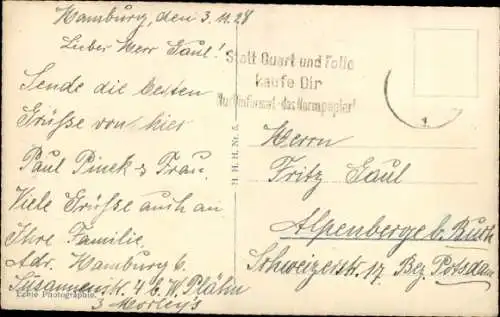 Hamburg, den 3.11.28
Lieber Herr Gaul!
Sende die besten
Grüsse von hier
Paul Pinek & Frau.
Viele Grüsse auch an
Ihre Familie.
Adr. Hamburg 6.
Susannenstr. 4 b. W. Plähn
3 Morley's
Echte Photographie.
H. H. H. Nr. 5.
Statt Quart und Folio
kaufe Dir
das Normpapier!
Herrn
Fritz Gaul
Alpenberge b. Buch
Schweizerstr. 17 Bez. Potsdam